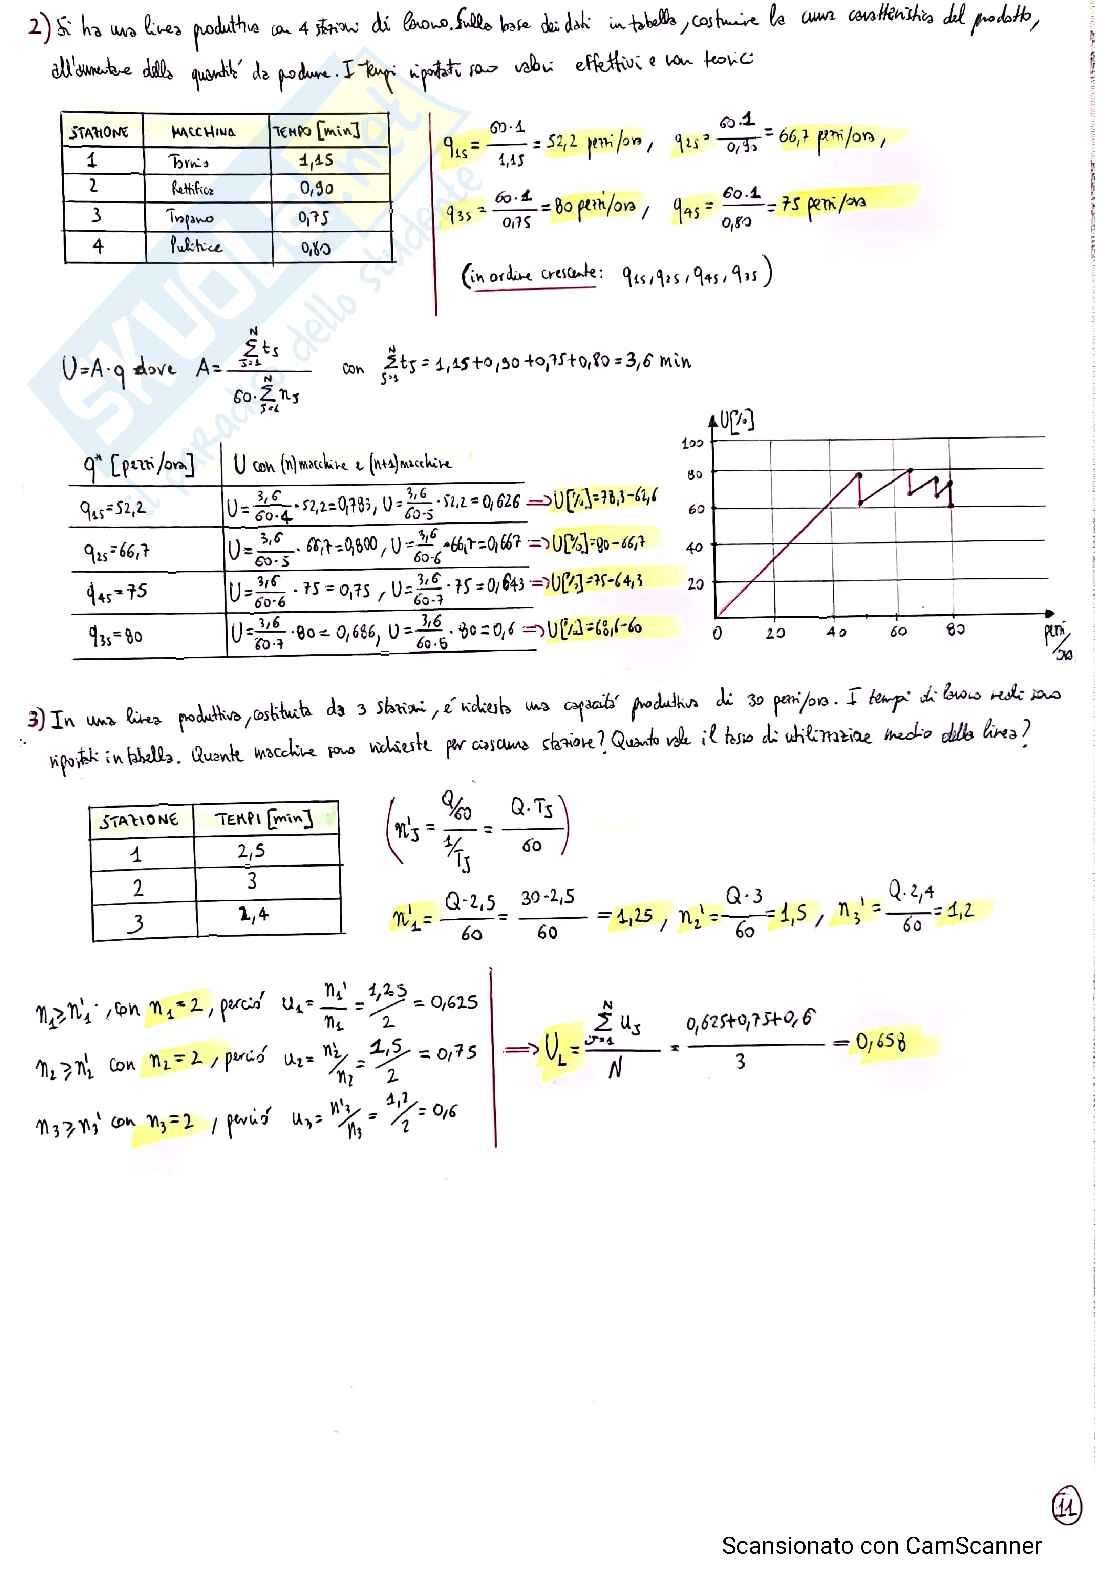 2) Si ha una linea produttiva con 4 stazioni di lavoro. Sulla base dei dati in tabella, costruire la curva caratteristica del prodotto,
all'aumentare della quantità da produrre. I tempi riportati sono valori effettivi e non teorici:
STAZIONE MACCHINA TEMPO [min]
1 Tornio 1,15
2 Rettifica 0,90
3 Trapano 0,75
4 Pulitrice 0,80
q1s = 60·1/1,15 = 52,2 pezzi/ora, q2s = 60·1/0,90 = 66,7 pezzi/ora,
q3s = 60·1/0,75 = 80 pezzi/ora, q4s = 60·1/0,80 = 75 pezzi/ora
(in ordine crescente: q1s, q2s, q4s, q3s)
U=A·q dove A = N Σ ts J=1 / 60· N Σ ns J=1 con N Σ ts J=1 = 1,15+0,90+0,75+0,80 = 3,6 min
q* [pezzi/ora] U con (n) macchine e (n+1) macchine
q1s=52,2 U= 3,6/60·4 · 52,2=0,783, U= 3,6/60·5 · 52,2=0,626 ⇒ U[%]=78,3-62,6
q2s=66,7 U= 3,6/60·5 · 66,7=0,800, U= 3,6/60·6 · 66,7=0,667 ⇒ U[%]=80-66,7
q4s=75 U= 3,6/60·6 · 75=0,75, U= 3,6/60·7 · 75=0,643 ⇒ U[%]=75-64,3
q3s=80 U= 3,6/60·7 · 80=0,686, U= 3,6/60·8 · 80=0,6 ⇒ U[%]=68,6-60
U[%]
100
80
60
40
20
0 20 40 60 80 pezzi/ora
3) In una linea produttiva, costituita da 3 stazioni, é richiesta una capacitá produttiva di 30 pezzi/ora. I tempi di lavoro reali sono
riportati in tabella. Quante macchine sono richieste per ciascuna stazione? Quanto vale il tasso di utilizzazione medio della linea?
STAZIONE TEMPI [min]
1 2,5
2 3
3 2,4
(n's = Q/60 / 1/Ts = Q·Ts / 60)
n'1 = Q·2,5/60 = 30·2,5/60 = 1,25, n2' = Q·3/60 = 1,5, n3' = Q·2,4/60 = 1,2
n1≥n'1, con n1=2, perció u1= n1'/n1 = 1,25/2 = 0,625
n2≥n2' con n2=2, perció u2= n2'/n2 = 1,5/2 = 0,75
n3≥n3' con n3=2, perció u3= n'3/n3 = 1,2/2 = 0,6
⇒ UL = N Σ us J=1 / N = 0,625+0,75+0,6 / 3 = 0,658
SKUOLA.net
il paradiso dello studente
11
Scansionato con CamScanner